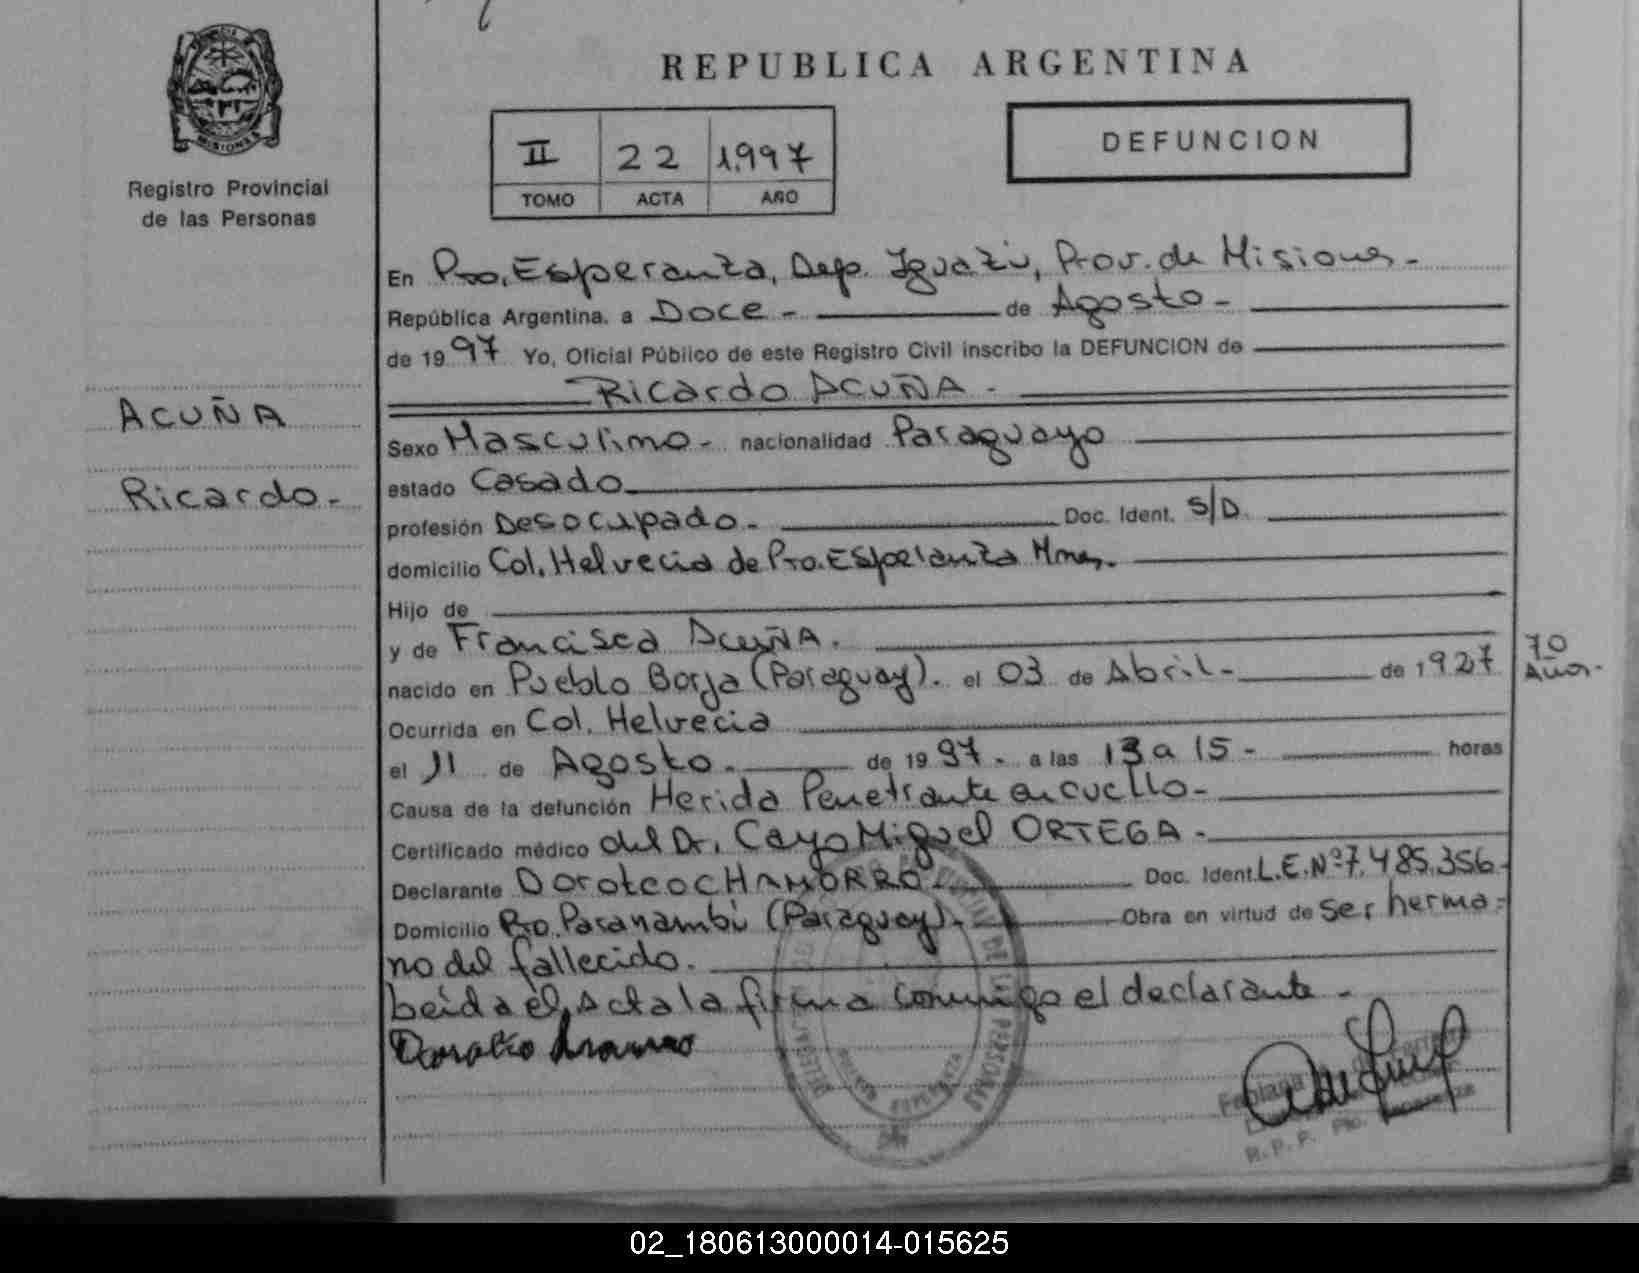 REPUBLICA ARGENTINA
MISIONES
Registro Provincial
de las Personas
II 22 1.997
TOMO ACTA AÑO
DEFUNCION
ACUÑA
Ricardo.-
En Pto. Esperanza, Dep. Iguazú, Prov. de Misiones.-
República Argentina, a Doce.- de Agosto.-
de 1997 Yo, Oficial Público de este Registro Civil inscribo la DEFUNCION de
Ricardo ACUÑA.-
Sexo Masculino.- nacionalidad Paraguayo
estado Casado.
profesión Desocupado.- Doc. Ident. S/D.
domicilio Col. Helvecia de Pto. Esperanza Mnes.
Hijo de
y de Francisca ACUÑA.
nacido en Pueblo Borja (Paraguay). el 03 de Abril.- de 1927
70
Años.-
Ocurrida en Col. Helvecia
el 11 de Agosto.- de 1997.- a las 13 a 15.- horas
Causa de la defunción Herida Penetrante en cuello.-
Certificado médico del Dr. Cayo Miguel ORTEGA.-
Declarante Doroteo CHAMORRO.- Doc. Ident. L.E. Nº 7.485.356.-
Domicilio Pto. Paranambú (Paraguay).- Obra en virtud de ser herma-
no del fallecido.
Leída el Acta la firma conmigo el declarante.-
DE LAS PERSONAS
R. P. P. Pto. Esperanza
02_180613000014-015625